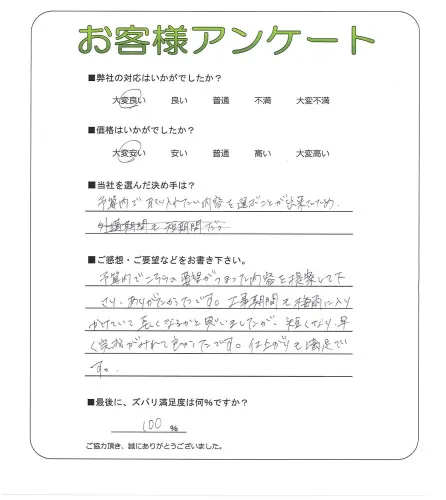 お客様アンケート
■弊社の対応はいかがでしたか？
大変良い 良い 普通 不満 大変不満
■価格はいかがでしたか？
大変安い 安い 普通 高い 大変高い
■当社を選んだ決め手は？
予算内で取り入れたい内容を選ぶことが出来たため.
■ご感想・ご要望などをお書き下さい。
予算内でこちらの要望がつまった内容を提案して下
さり、ありがたかったです。工事期間も梅雨に入り
かけていて長くなるかと思いましたが、短くなり、早
く完成がみれて良かったです。仕上がりも満足で
す。
■最後に、ズバリ満足度は何％ですか？
100 ％
ご協力頂き、誠にありがとうございました。